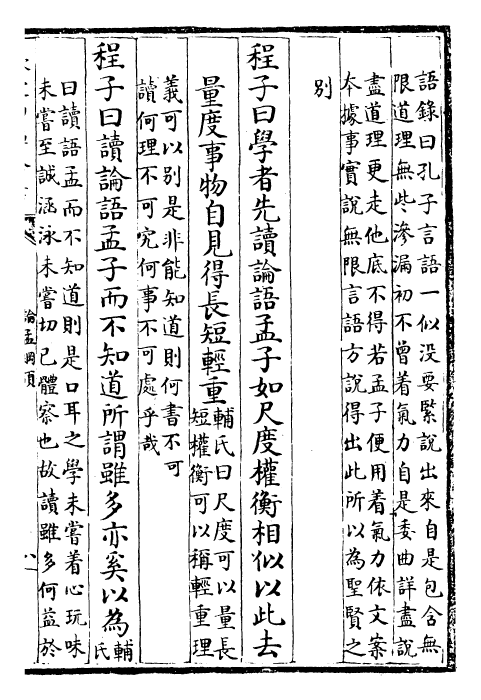 語錄曰孔子言語一似没要緊說出來自是包含無
限道理無些滲漏初不曾着氣力自是委曲詳盡說
盡道理更走他底不得若孟子便用着氣力依文案
本據事實說無限言語方說得出此所以為聖賢之
别
程子曰學者先讀論語孟子如尺度權衡相似以此去
量度事物自見得長短輕重
輔氏曰尺度可以量長
短權衡可以稱輕重理
義可以别是非能知道則何書不可
讀何理不可究何事不可處乎哉
程子曰讀論語孟子而不知道所謂雖多亦奚以為
輔氏
曰讀語孟而不知道則是口耳之學未嘗着心玩味
未嘗至誠涵泳未嘗切己體察也故讀雖多何益於
論孟綱領
八